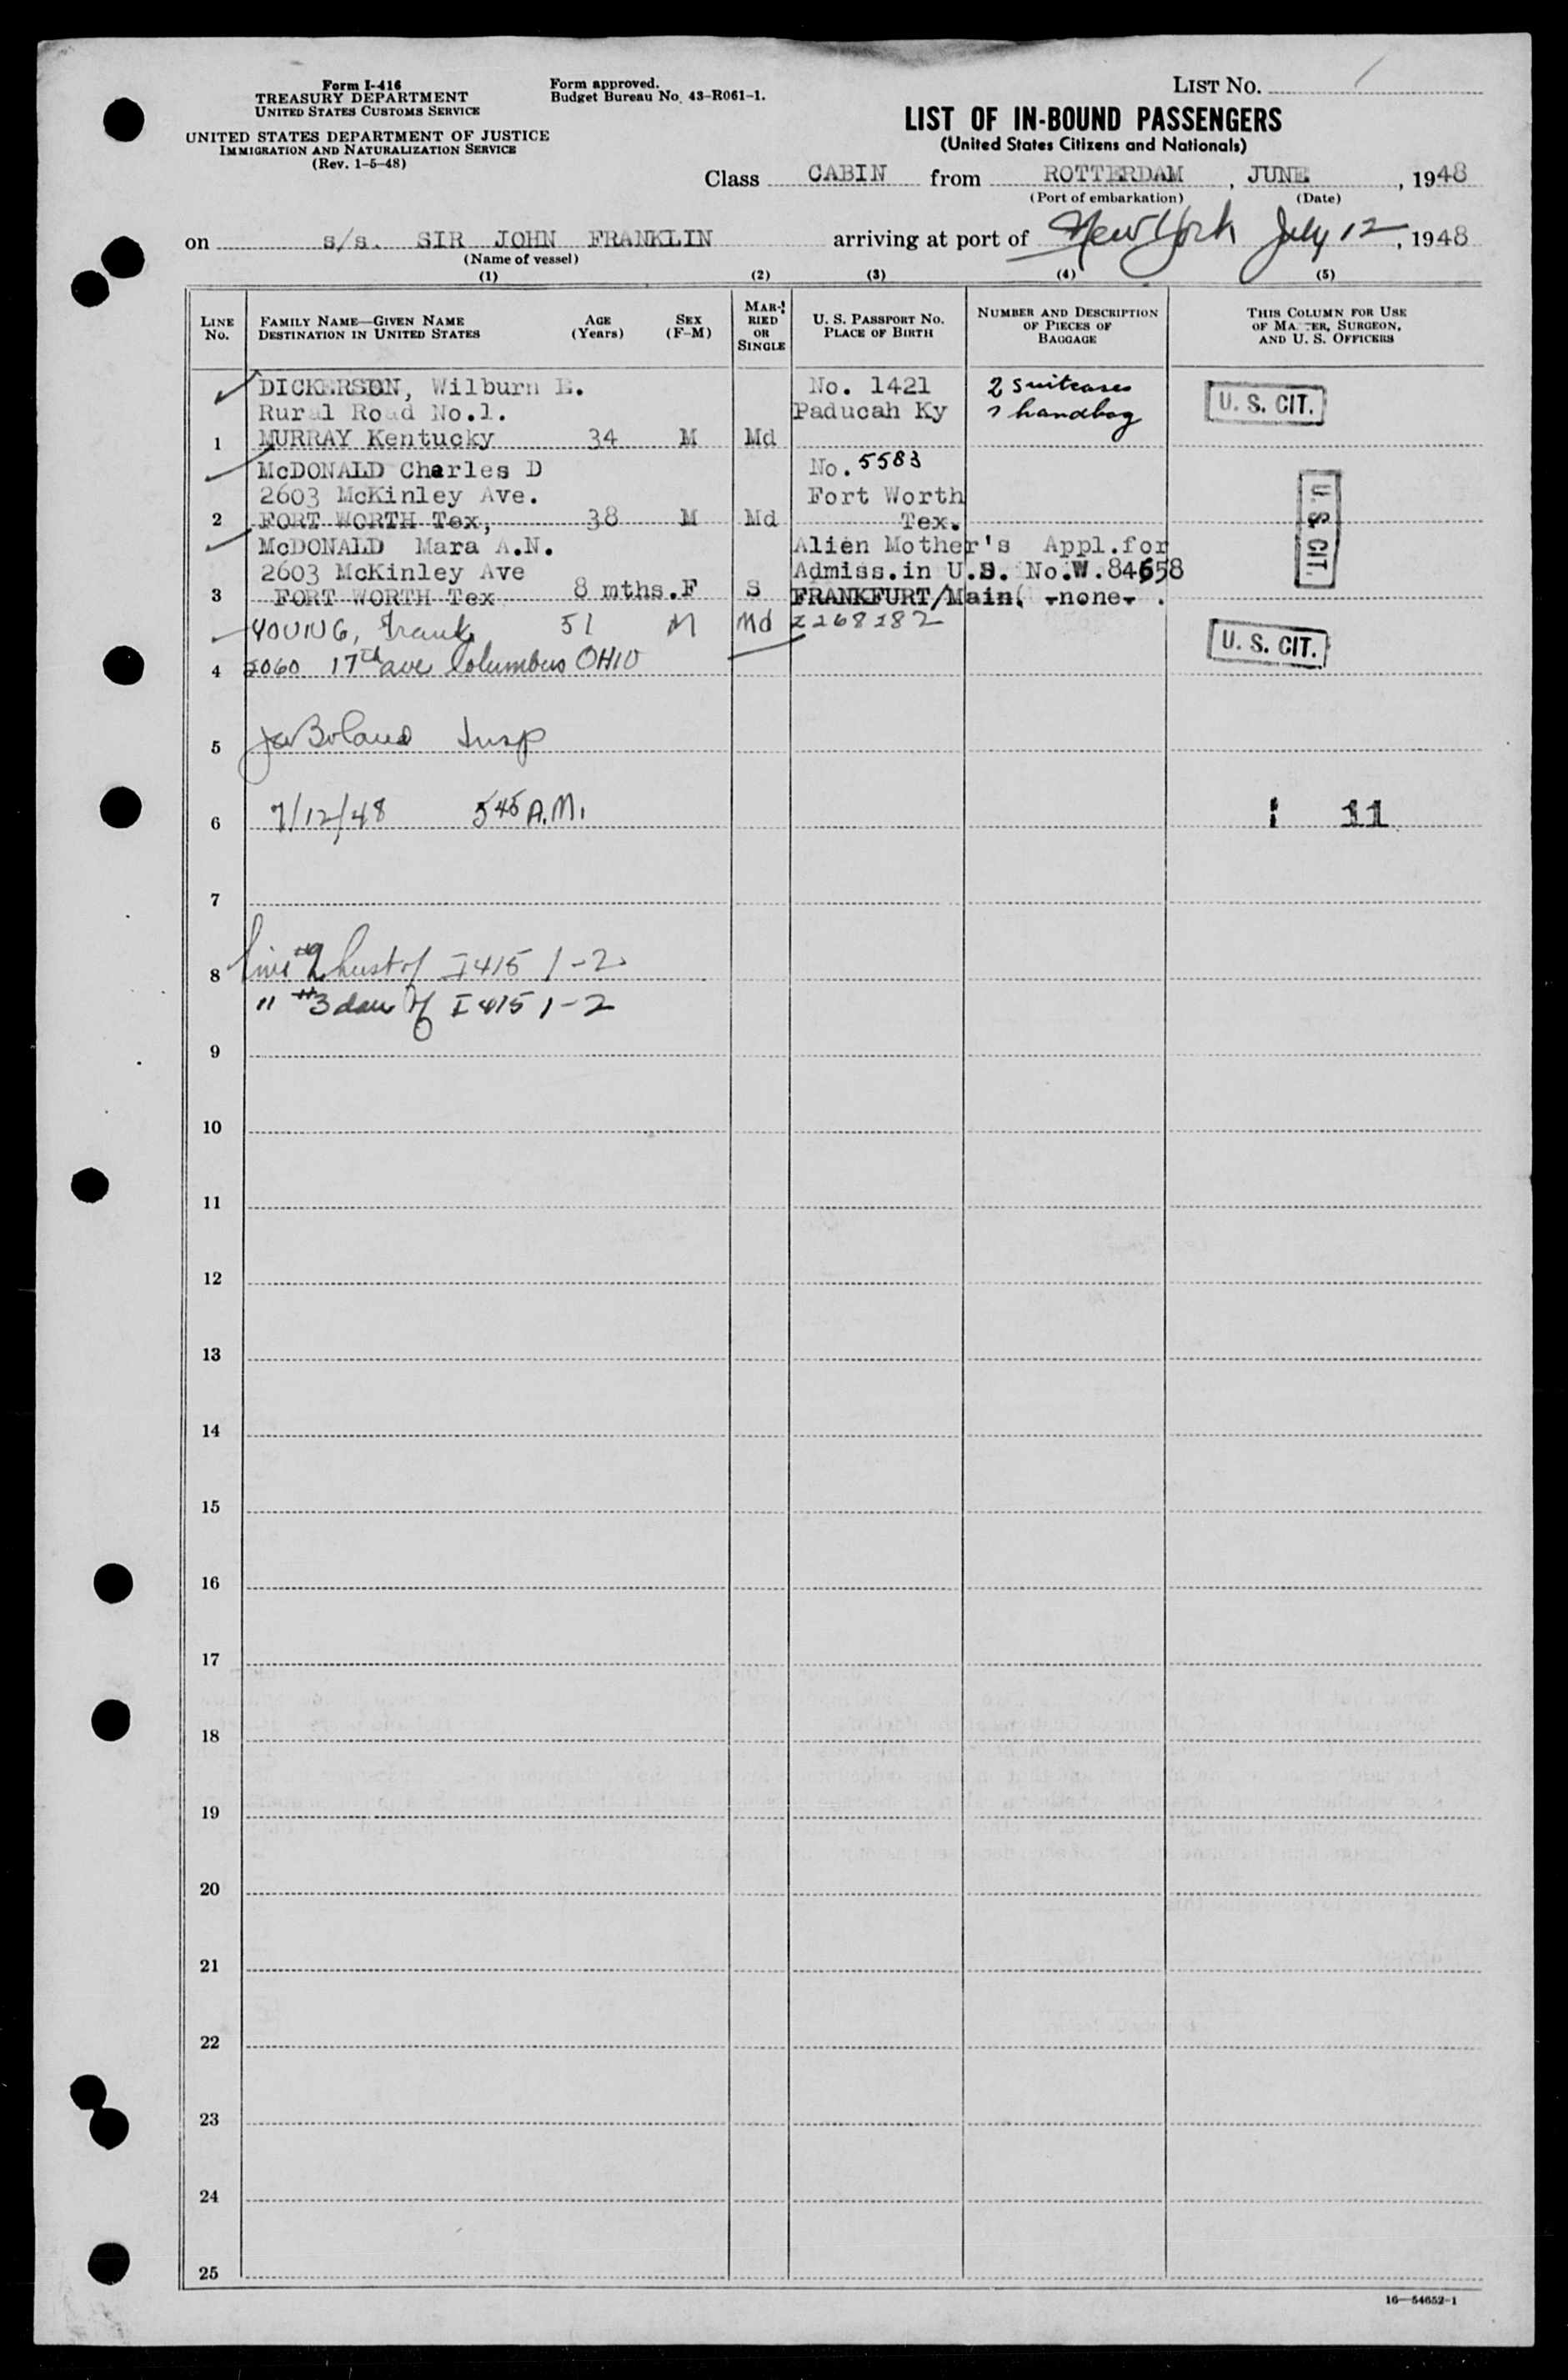 Form I-416
TREASURY DEPARTMENT
UNITED STATES CUSTOMS SERVICE
UNITED STATES DEPARTMENT OF JUSTICE
IMMIGRATION AND NATURALIZATION SERVICE
(Rev. 1-5-48)
Form approved.
Budget Bureau No. 43-R061-1.
LIST NO. /
LIST OF IN-BOUND PASSENGERS
(United States Citizens and Nationals)
Class CABIN from ROTTERDAM, JUNE, 1948
(Port of embarkation) (Date)
on s/s. SIR JOHN FRANKLIN arriving at port of New York July 12, 1948
(Name of vessel)
(1) (2) (3) (4) (5)
LINE NO.
FAMILY NAME—GIVEN NAME
DESTINATION IN UNITED STATES
AGE (Years)
SEX (F-M)
MARRIED OR SINGLE
U. S. PASSPORT NO.
PLACE OF BIRTH
NUMBER AND DESCRIPTION OF PIECES OF BAGGAGE
THIS COLUMN FOR USE OF MASTER, SURGEON, AND U. S. OFFICERS
DICKERSON, Wilburn E. No. 1421 2 suitcases
Rural Road No.1. Paducah Ky 1 handbag U. S. CIT.
1 MURRAY Kentucky 34 M Md
McDONALD Charles D No. 5583
2603 McKinley Ave. Fort Worth
2 FORT WORTH Tex, 38 M Md Tex. U. S. CIT.
McDONALD Mara A.N. Alien Mother's Appl.for
2603 McKinley Ave Admiss.in U.S. No.W.84658
3 FORT WORTH Tex 8 mths. F S FRANKFURT/Main. -none- .
YOUNG, Frank 51 M Md 2268282
4 2060 17th ave Columbus OHIO U. S. CIT.
5 Boland Insp
6 7/12/48 5 45 A.M. 11
7
8 line #2 hust of I 415 1-2
" #3 dau of I 415 1-2
9
10
11
12
13
14
15
16
17
18
19
20
21
22
23
24
25
16—54652-1